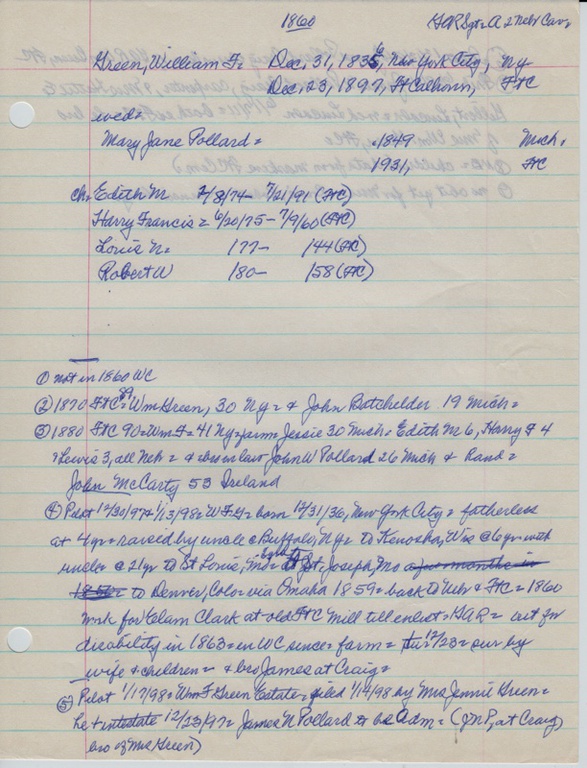 1860 GAR Sgt = A 2 Nebr Cav =
Green, William F = Dec, 31, 1836, New York City, Ny
Dec, 23, 1897, Ft Calhoun, FtC
wed =
Mary Jane Pollard = 1849 Mich,
1931, FtC
ch = Edith M 2/8/74 - 7/21/91 (FtC)
Harry Francis = 6/20/75 - 7/9/60 (FtC)
Louis N = 177 - 144 (FtC)
Robert W 180 - 158 (FtC)
① not in 1860 WC
② 1870 FtC 89 = Wm Green, 30 Ny = & John Batchelder 19 Mich =
③ 1880 FtC 90 = Wm F = 41 Ny = farm = Jessie 30 Mich = Edith M 6, Harry F 4
= Lewis 3, all Neb = & bro in law John W Pollard 26 Mich & Rand =
John McCarty 53 Ireland
④ Pilot 12/30/97 & 1/13/98 = W F G = born 12/31/36, New York City = fatherless
at 4 yr = raised by uncle @ Buffalo, Ny = to Kenosha, Wis @ 6 yr with
uncle = @ 21 yr to St Louis, Mo = St Joseph, Mo a few months in
= to Denver, Colo via Omaha 1859 = back to Nebr & FtC = 1860
work for Elam Clark at old FtC Mill till enlist = GAR = out for
disability in 1863 = in WC since = farm = 12/23 = sur by
wife & children = & bro James at Craig =
⑤ Pilot 1/17/98 = Wm F Green Estate = filed 1/14/98 by Mrs Jennie Green =
he + intestate 12/23/97 = James N Pollard to be Adm = (JNP, at Craig,
bro of Mrs Green)